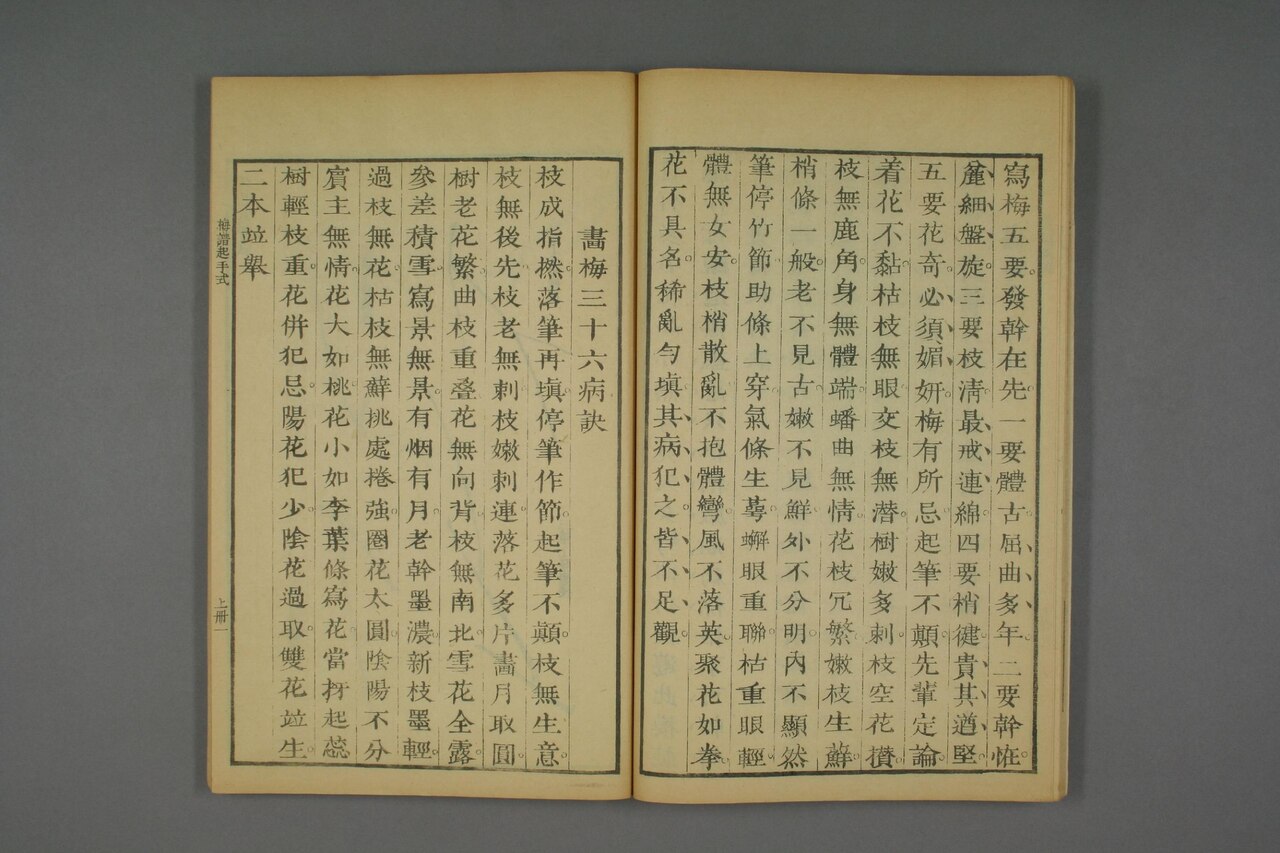 寫梅五要。發幹在先。一要體古。屈曲多年。二要幹怪。
麄細盤旋。三要枝淸。最戒連綿。四要梢健。貴其遒堅。
五要花奇。必須媚妍。梅有所忌。起筆不顚。先輩定論。
着花不黏。枯枝無眼。交枝無潜。樹嫰多刺。枝空花攢。
枝無鹿角。身無體端。蟠曲無情。花枝冗繁。嫰枝生蘚。
梢條一般。老不見古。嫰不見鮮。外不分明。內不顯然。
筆停竹節。助條上穿。氣條生蕚。蠏眼重聯。枯重眼輕。
體無女安。枝梢散亂。不抱體彎。風不落英。聚花如拳。
花不具名。稀亂勻塡。其病犯之。皆不足觀。
畫梅三十六病訣
枝成指撚。落筆再塡。停筆作節。起筆不顚。枝無生意。
枝無後先。枝老無刺。枝嫰刺連。落花多片。畫月取圓。
樹老花繁。曲枝重叠。花無向背。枝無南北。雪花全露。
參差積雪。寫景無景。有烟有月。老幹墨濃。新枝墨輕。
過枝無花。枯枝無蘚。挑處捲強。圈花太圓。陰陽不分。
賓主無情。花大如桃。花小如李。葉條寫花。當枒起蕊。
樹輕枝重。花併犯忌。陽花犯少。陰花過取。雙花竝生。
二本竝舉。
梅譜起手式
上册一